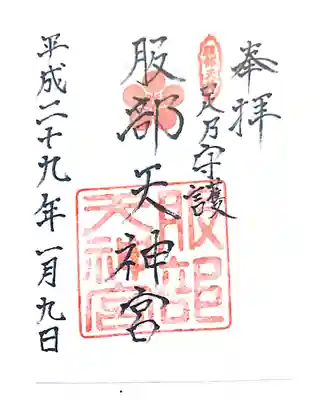 奉拝
足乃守護
服部天神宮
服部
天神宮
平成二十九年一月九日